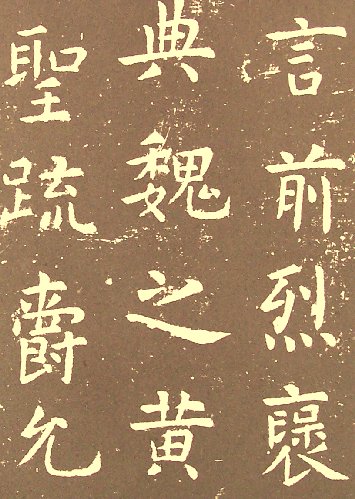 言前烈褒
典魏之黄
聖疏爵允